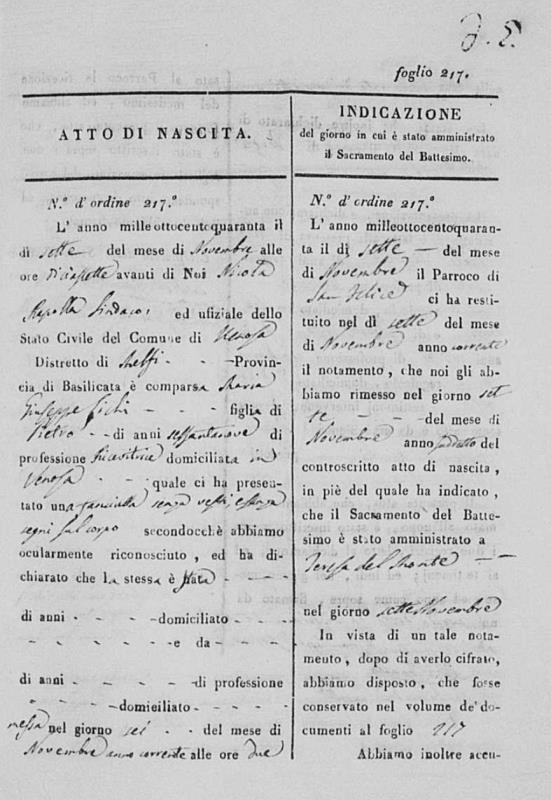 foglio 217.
ATTO DI NASCITA.
N.º d'ordine 217.º
L'anno milleottocentoquaranta il
dì sette del mese di Novembre alle
ore Diciassette avanti di Noi Nicola
Rapolla Sindaco, ed ufiziale dello
Stato Civile del Comune di Venosa
Distretto di Melfi - - Provin-
cia di Basilicata è comparsa Maria
Giuseppe - - - figlia di
Pietro - - di anni sessantanove di
professione Ricevitrice domiciliata in
Venosa - - quale ci ha presen-
tato una fanciulla senza vesti, e senza
segni sul corpo secondocchè abbiamo
ocularmente riconosciuto, ed ha di-
chiarato che la stessa è stata - - - -
di anni - - - - domiciliato - - -
- - - - - - - e da - - - -
di anni - - - - - di professione
- - - domiciliato - - - - -
messa nel giorno sei - - del mese di
Novembre anno corrente alle ore due
INDICAZIONE
del giorno in cui è stato amministrato
il Sacramento del Battesimo.
N.º d'ordine 217.º
L'anno milleottocentoquaran-
ta il dì sette - del mese
di Novembre il Parroco di
San Felice ci ha resti-
tuito nel dì sette del mese
di Novembre anno corrente
il notamento, che noi gli ab-
biamo rimesso nel giorno set
te - - - del mese di
Novembre anno suddetto del
controscritto atto di nascita,
in piè del quale ha indicato,
che il Sacramento del Batte-
simo è stato amministrato a
Teresa del Monte - -
nel giorno sette Novembre
In vista di un tale nota-
mento, dopo di averlo cifrato,
abbiamo disposto, che fosse
conservato nel volume de' do-
cumenti al foglio 217
Abbiamo inoltre accu-